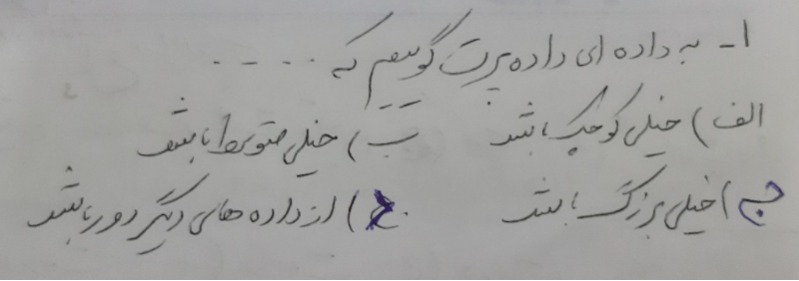 ۱- به داده ای داده پرت گوییم که .....
الف) خیلی کوچک باشد ب) خیلی متوسط باشد
ج) خیلی بزرگ باشد د) از داده های دیگر دور باشد